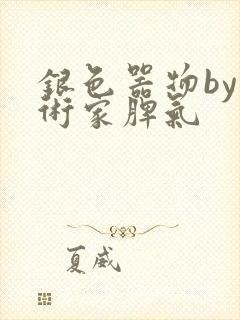 銀色器物by
術家脾氣
夏威